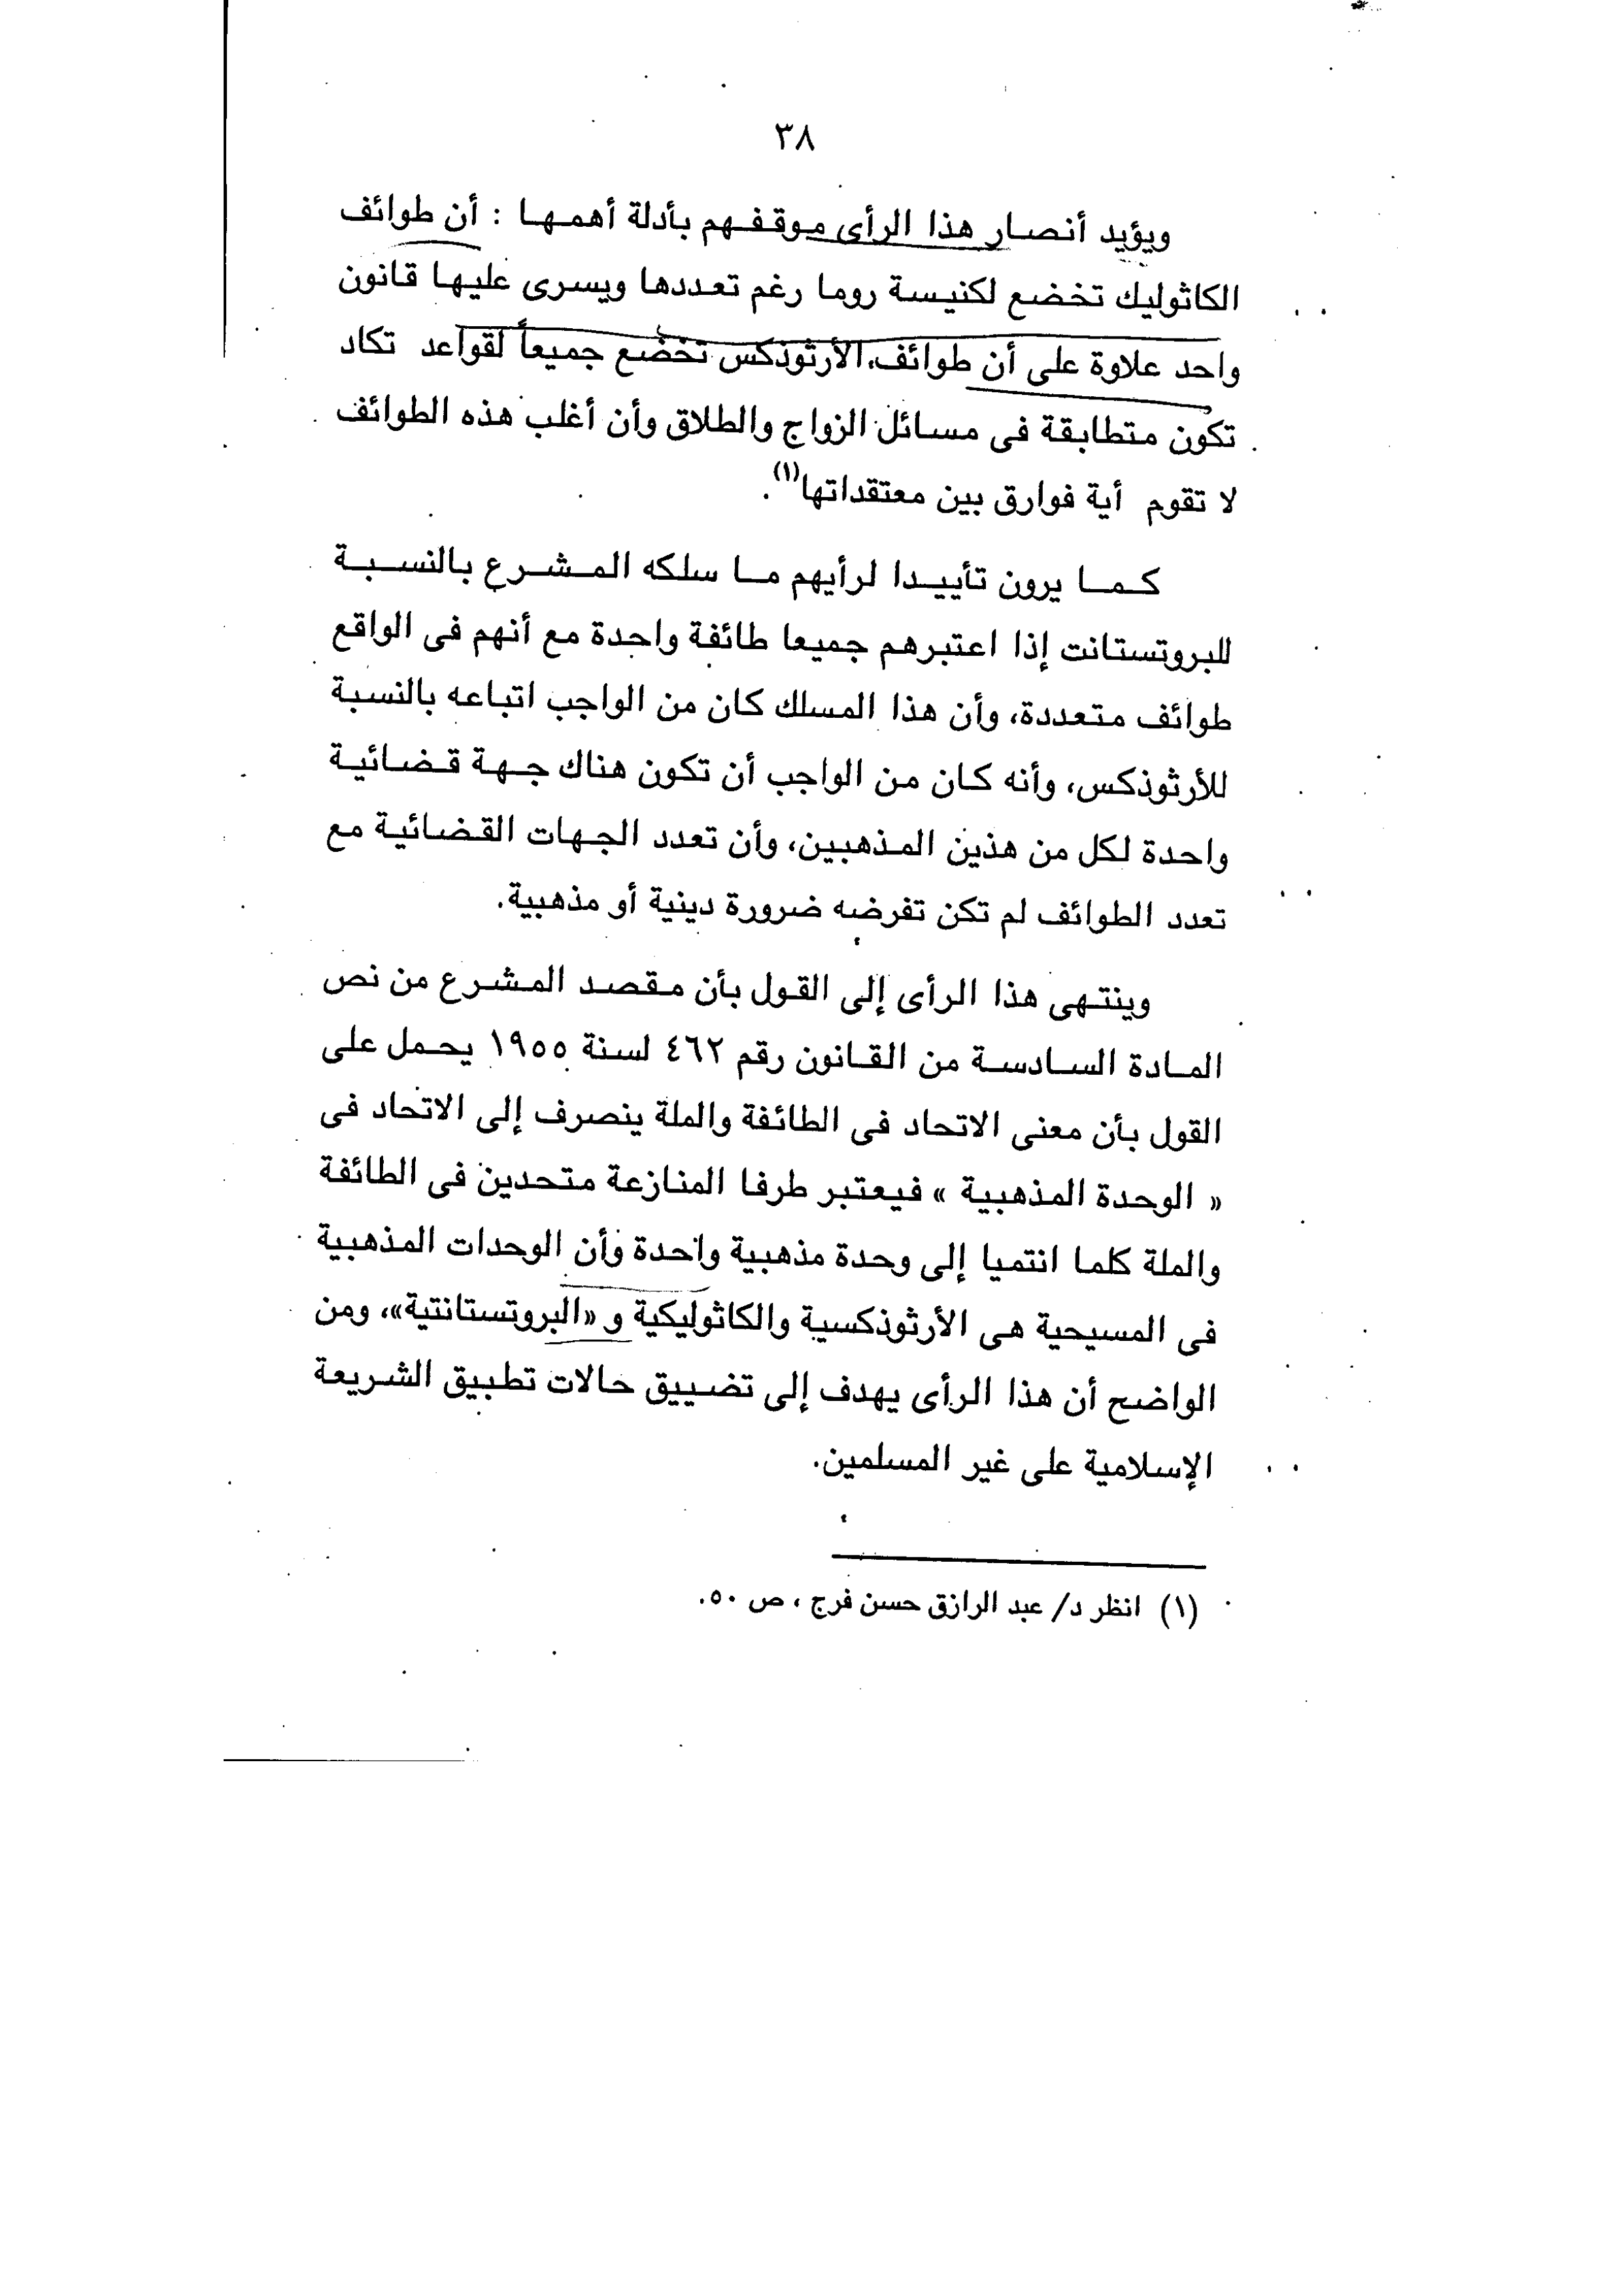 ٣٨
ويؤيد أنصار هذا الرأى موقفهم بأدلة أهمها : أن طوائف
الكاثوليك تخضع لكنيسة روما رغم تعددها ويسرى عليها قانون
واحد علاوة على أن طوائف الأرثوذكس تخضع جميعاً لقواعد تكاد
تكون متطابقة فى مسائل الزواج والطلاق وأن أغلب هذه الطوائف
لا تقوم أية فوارق بين معتقداتها(١).
كما يرون تأييدا لرأيهم ما سلكه المشرع بالنسبة
للبروتستانت إذا اعتبرهم جميعا طائفة واحدة مع أنهم فى الواقع
طوائف متعددة، وأن هذا المسلك كان من الواجب اتباعه بالنسبة
للأرثوذكس، وأنه كان من الواجب أن تكون هناك جهة قضائية
واحدة لكل من هذين المذهبين، وأن تعدد الجهات القضائية مع
تعدد الطوائف لم تكن تفرضه ضرورة دينية أو مذهبية.
وينتهى هذا الرأى إلى القول بأن مقصد المشرع من نص
المادة السادسة من القانون رقم ٤٦٢ لسنة ١٩٥٥ يحمل على
القول بأن معنى الاتحاد فى الطائفة والملة ينصرف إلى الاتحاد فى
« الوحدة المذهبية » فيعتبر طرفا المنازعة متحدين فى الطائفة
والملة كلما انتميا إلى وحدة مذهبية واحدة وأن الوحدات المذهبية
فى المسيحية هى الأرثوذكسية والكاثوليكية و «البروتستانتية»، ومن
الواضح أن هذا الرأى يهدف إلى تضييق حالات تطبيق الشريعة
الإسلامية على غير المسلمين.
(١) انظر د/ عبد الرازق حسن فرج ، ص ٥٠.